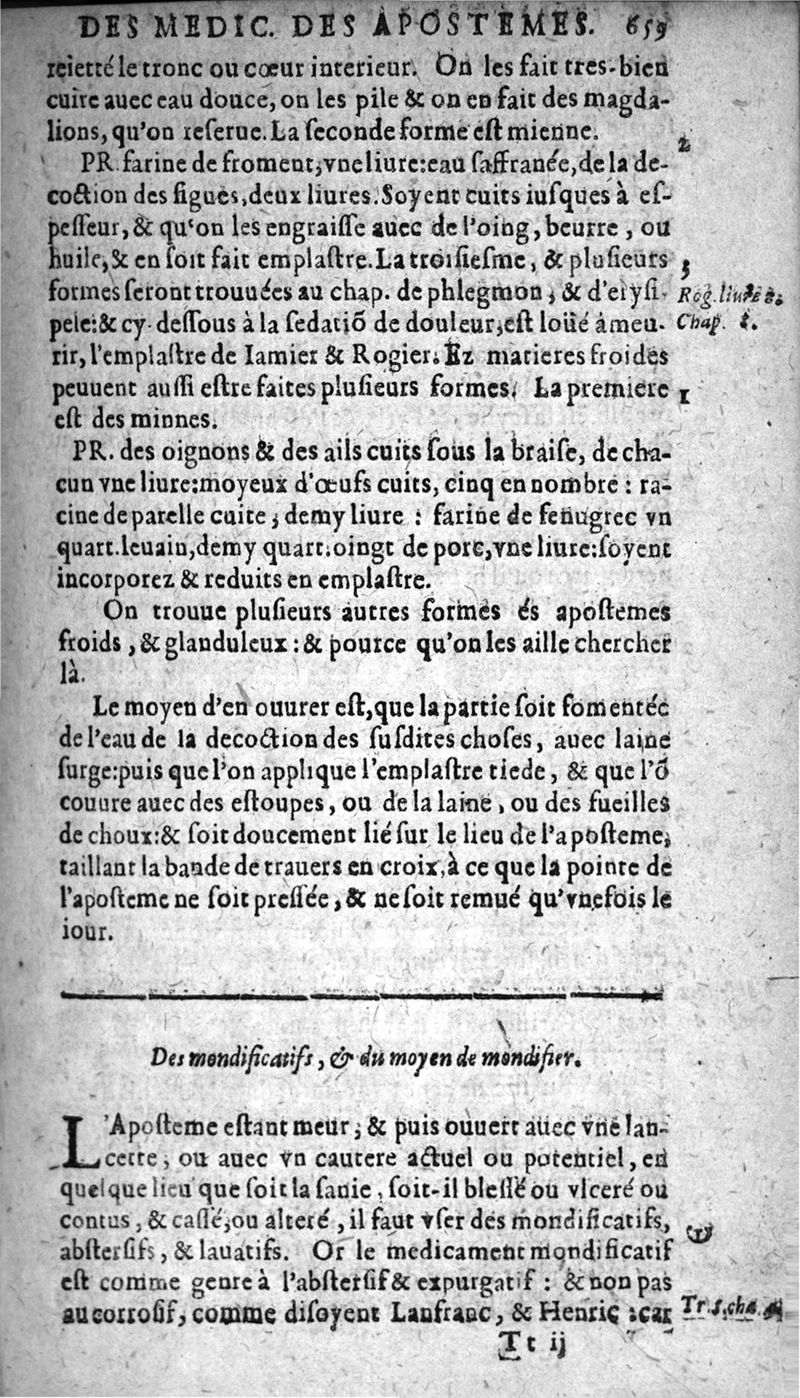 DES MEDIC. DES APOSTEMES. 659
reietté le tronc ou cœur interieur. On les fait tres-bien
cuire auec eau douce, on les pile & on en fait des magda-
lions, qu'on reserue. La seconde forme est mienne.
2
PR. farine de froment, vne liure: eau saffranée, de la de-
coction des figues, deux liures. Soyent cuits iusques à es-
pesseur, & qu'on les engraisse auec de l'oing, beurre, ou
huile, & en soit fait emplastre. La troisiesme, & plusieurs
3
formes seront trouuées au chap. de phlegmon, & d'erysi-
Rog. liure 1.
pele: & cy dessous à la sedatiõ de douleur, est loüé à meu-
Chap. 1.
rir, l'emplastre de Iamier & Rogier. Ez matieres froides
peuuent aussi estre faites plusieurs formes. La premiere
1
est des minnes.
PR. des oignons & des ails cuits sous la braise, de cha-
cun vne liure: moyeux d'œufs cuits, cinq en nombre: ra-
cine de parelle cuite, demy liure : farine de fenugrec vn
quart. leuain, demy quart. oingt de porc, vne liure: soyent
incorporez & reduits en emplastre.
On trouue plusieurs autres formes és apostemes
froids, & glanduleux: & pource qu'on les aille chercher
là.
Le moyen d'en ouurer est, que la partie soit fomentée
de l'eau de la decoction des susdites choses, auec laine
surge: puis que l'on applique l'emplastre tiede, & que l'õ
couure auec des estoupes, ou de la laine, ou des fueilles
de choux: & soit doucement lié sur le lieu de l'aposteme,
taillant la bande de trauers en croix, à ce que la pointe de
l'aposteme ne soit pressée, & ne soit remué qu'vne fois le
iour.
Des mondificatifs, & du moyen de mondifier.
L'Aposteme estant meur, & puis ouuert auec vne lan-
cette, ou auec vn cautere actuel ou potentiel, en
quelque lieu que soit la sanie, soit-il blessé ou vlceré ou
contus, & cassé, ou alteré, il faut vser des mondificatifs,
abstersifs, & lauatifs. Or le medicament mondificatif
est comme genre à l'abstersif & expurgatif : & non pas
au corrosif, comme disoyent Lanfranc, & Henric : car
Tr. 5. cha.
Tt ij